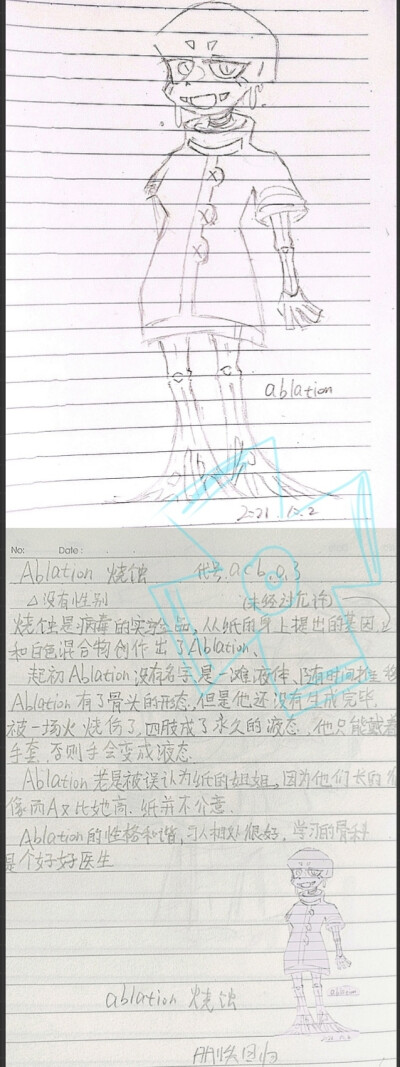 ablation
2021.12.2
No: Date:
Ablation 烧蚀 代号.acb.0.3
△没有性别 (未经过允许)
烧蚀是病毒的实验品,从纸的身上提出的基因
和白色混合物创作出了Ablation.
起初Ablation没有名字,是一滩液体,
Ablation有了骨头的形态,但是他还没有生成完毕.
被一场火烧伤了,四肢成了永久的液态.他只能戴着
手套,否则手会变成液态.
Ablation老是被误认为纸的姐姐,因为他们长的很
像而A又比她高.纸并不介意.
Ablation的性格和谐,与人相处很好,学习的骨科
是个好好医生
ablation
ablation 烧蚀